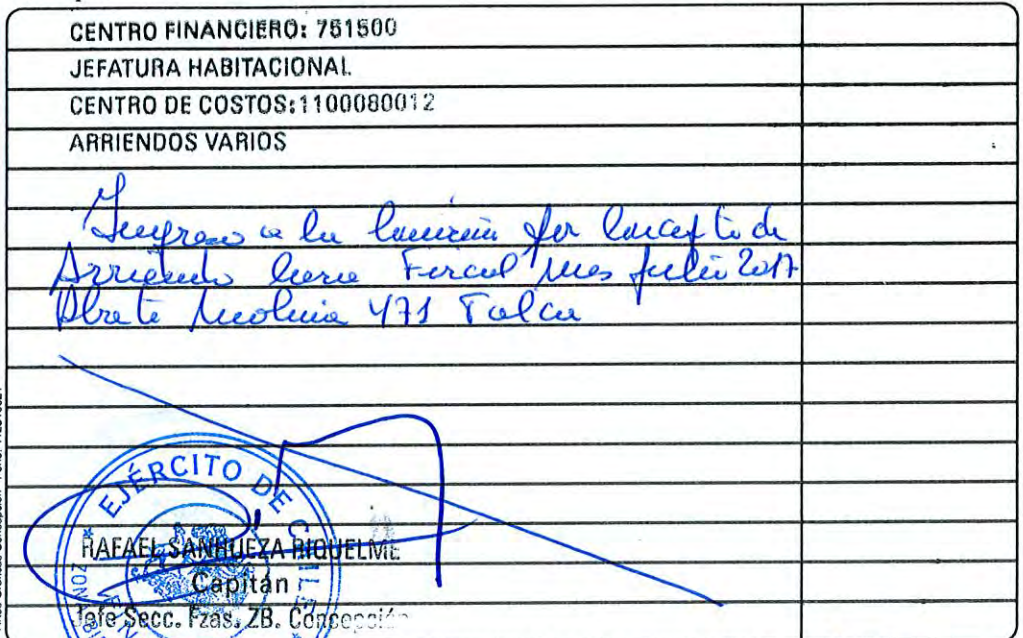 CENTRO FINANCIERO: 751500
JEFATURA HABITACIONAL
CENTRO DE COSTOS: 1100080012
ARRIENDOS VARIOS
Ingreso a la por Concepto de
Arriendo Fiscal mes Julio 2017
Molina 471 Talca
EJÉRCITO DE CHILE
RAFAEL SANHUEZA RIQUELME
Capitán
Jefe Secc. Fzas. ZB. Concepción